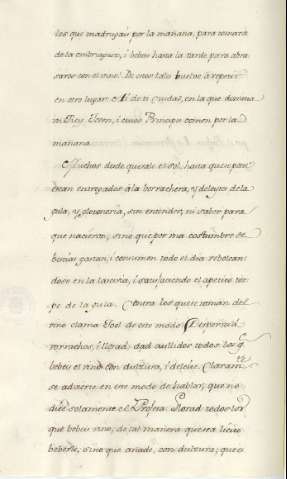 los que madrugan por la mañana, para tomarà
de la embriaguez, i beber hasta la tarde para abra
saros con el vino. De otros tales buelve à repetir
en otro lugar. Ai de ti Ciudad, en la que domina
un Rey Joven, i cuios Principes comen por la
mañana
Muchos desde que sale el sol, hasta que se pone
estan entregados à la borrachera, y deleytes de la
gula, y glotoneria, sin entender, ni saber para
que nacieron, sino que por mala costumbre se
bestias gastan, i consumen todo el dia rebolcan
dose en la lascivia, i satisfaciendo el apetito tor
pe de la gula. Contra los que se toman del
vino clama Joel de este modo. Despertad
borrachos, i llorad: dad aullidos todos los q.
bebeis el vino con dulzura, i deleite. Claram.te
se advierte en este modo de hablar, que no
dice solamente el Profeta: Llorad todos los
que bebeis vino, de tal manera que sea licito
beberle, sino que añade, con dulzura, que es